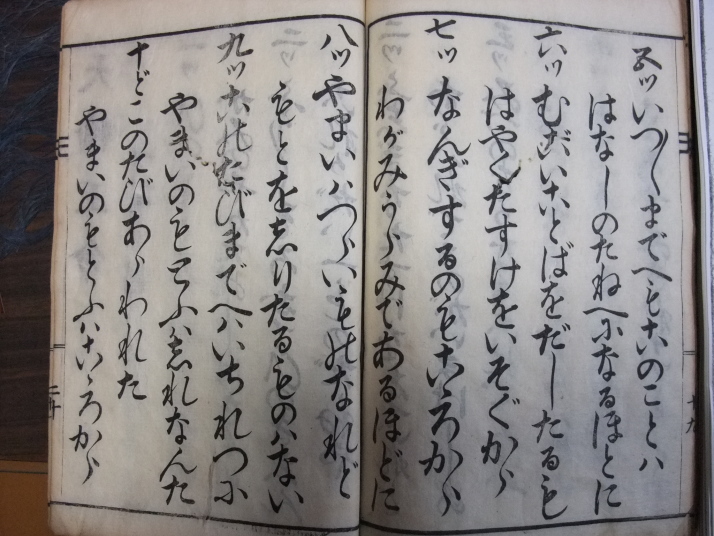 五ツ いつ／＼までへもこのことハ
はなしのたねへになるほとに
六ツ むごいことばをだしたるも
はやくたすけをいそぐから
七ツ なんぎするのもこゝろから
わがみうらみであるほどに
十九
八ツ やまいハつらいものなれど
もとをしりたるものハない
九ツ このたびまでへハいちれつに
やまいのもとふハしれなんた
十ど このたびあらわれた
やまいのもとふハこゝろから
二十